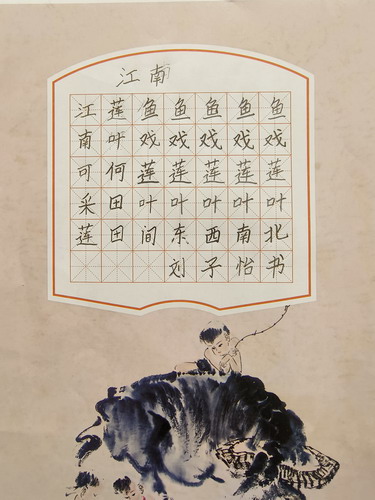 江南
江南可采莲
莲叶何田田
鱼戏莲叶间
鱼戏莲叶东
鱼戏莲叶西
鱼戏莲叶南
鱼戏莲叶北
刘子怡书